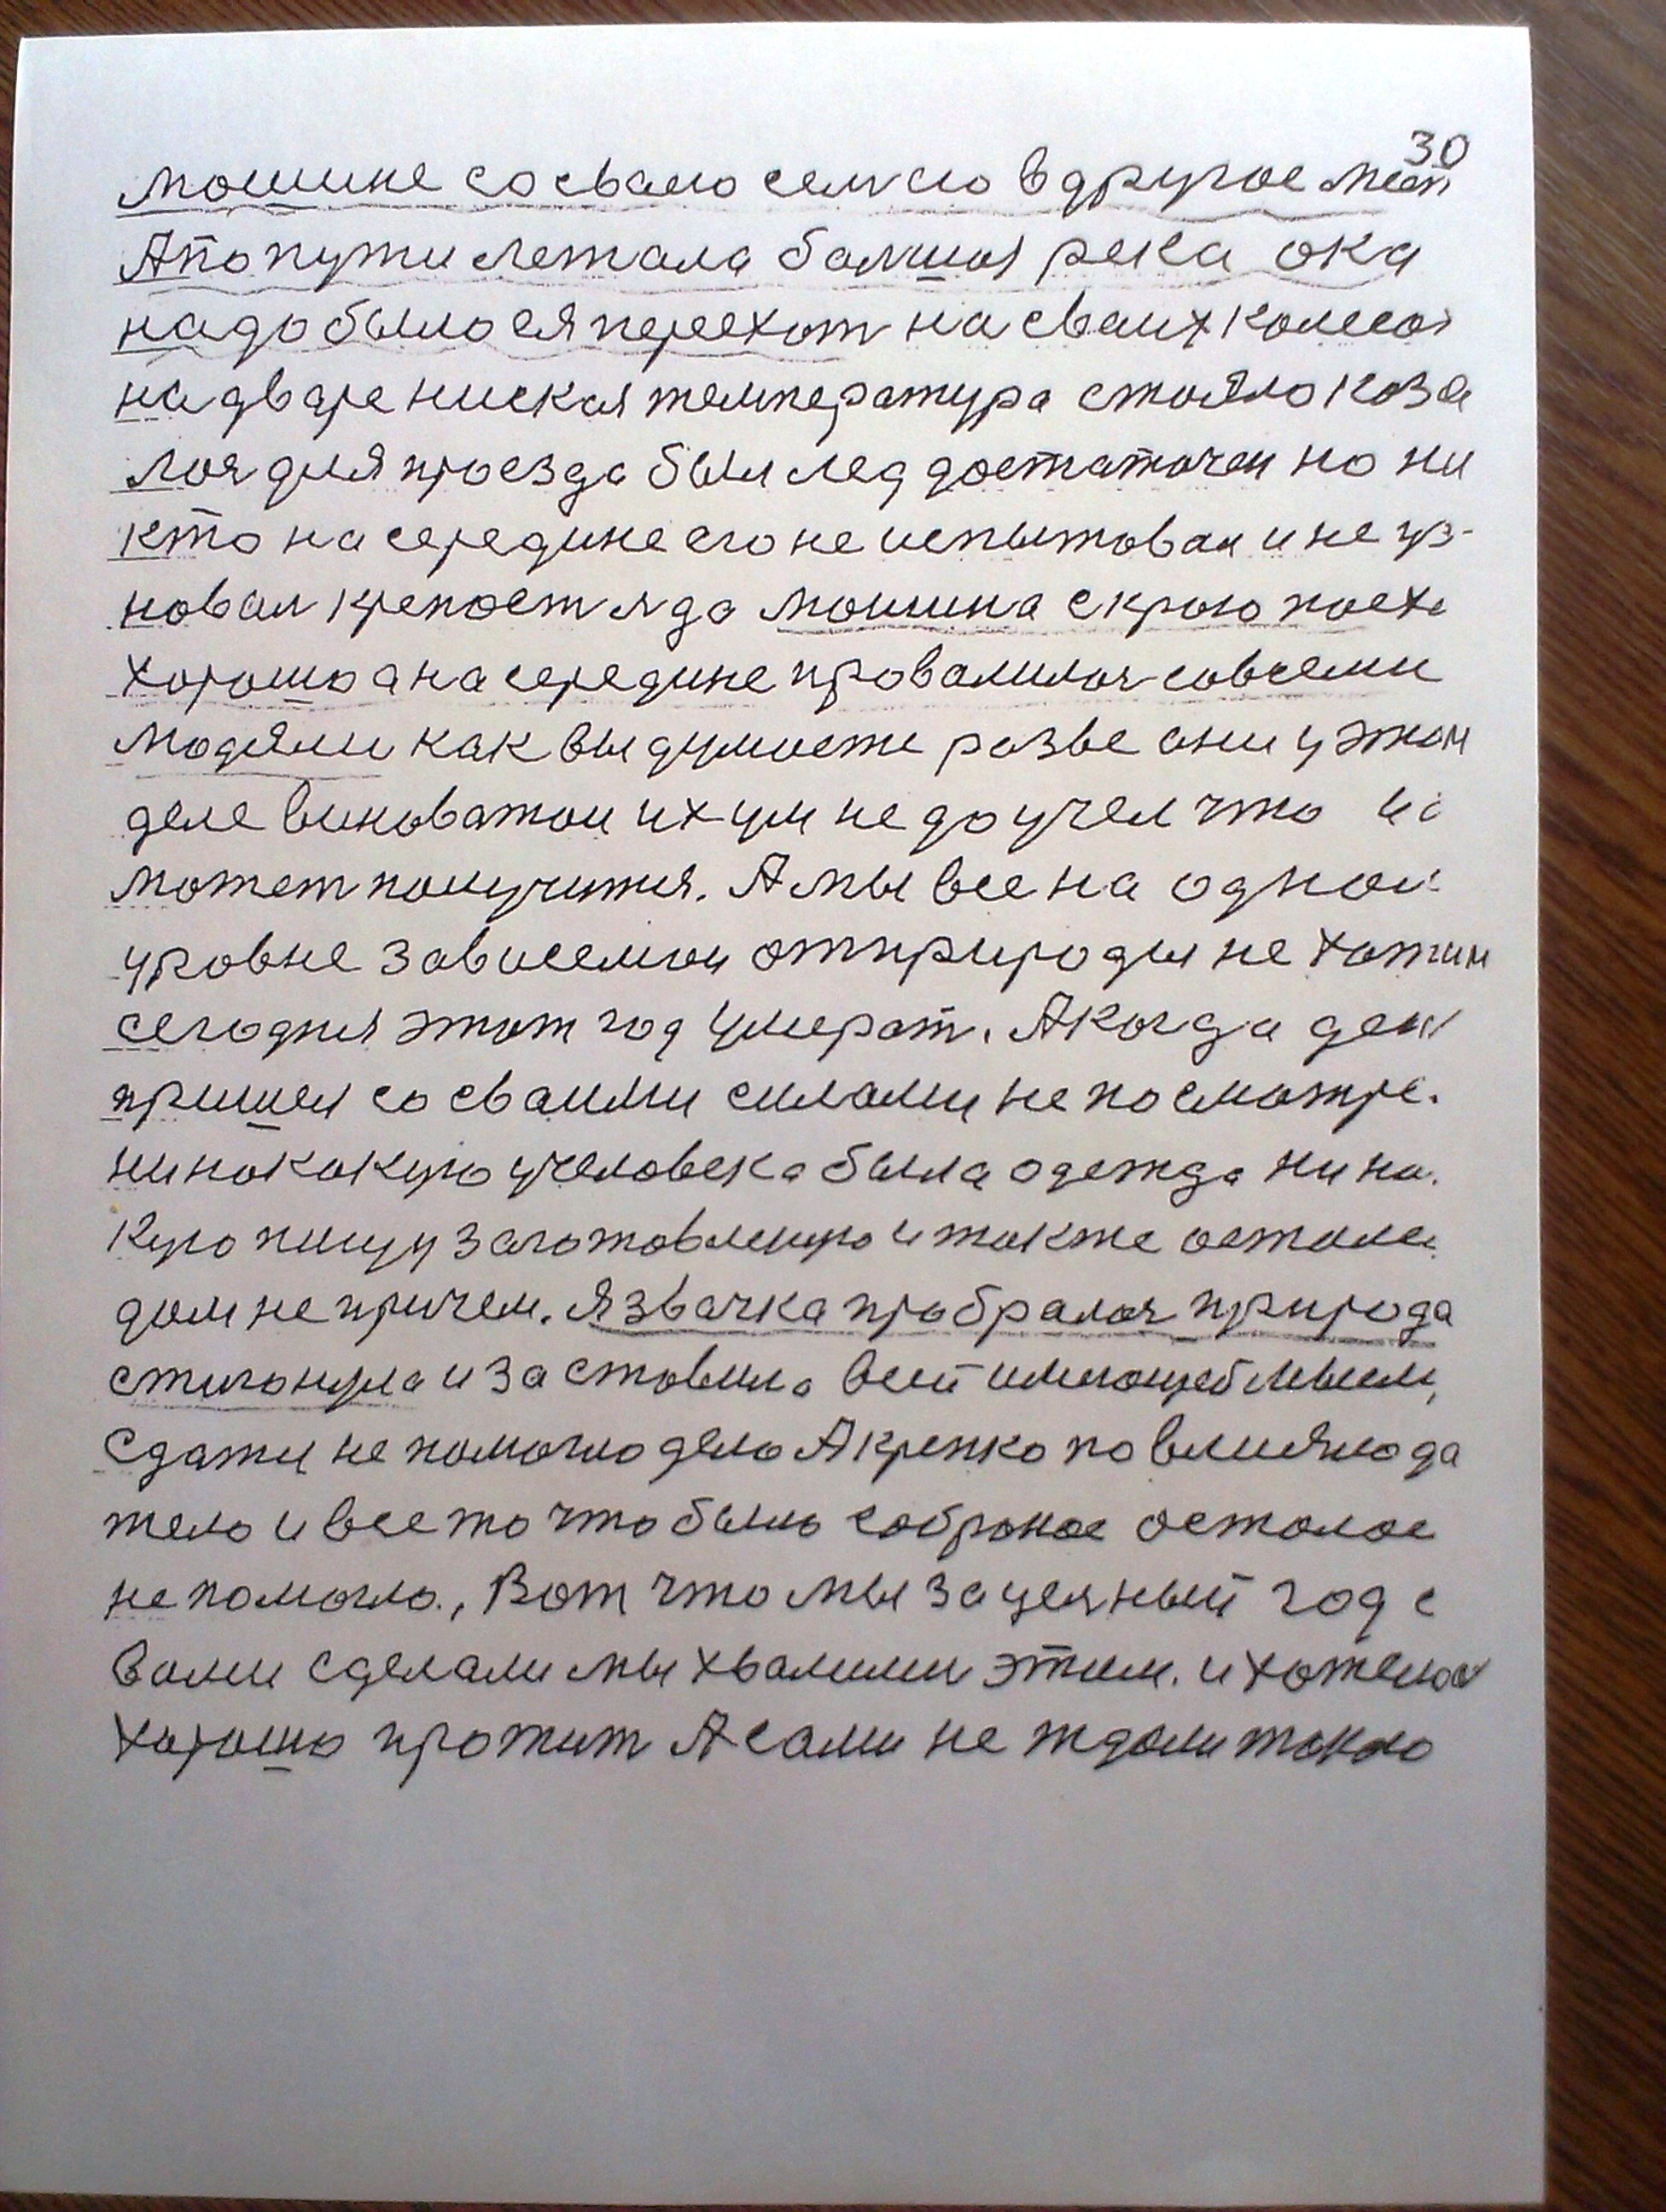 30
мошине со сваею семъею в другое мест
А по пути лежала болшая река ока
надо было ея переехат на сваих колесах
на дваре ниская температура стояло каза
лоя для проезда был лед достаточен но ни
кто на середине его не испытовал и не уз-
новал крепост лда мошина с краю поехе
хорошо а на середине провалилоя совсеми
людями как вы думаете разве они у этом
деле виноватои их ум не доучел что
может получится. А мы все на одной
уровне зависемои от природы не хотим
сегодня этот год умерат. А когда ден
пришел со сваими силами не посмотре.
ни на какую у человека была одежда ни на.
кую пищу заготовленую и также остале
дом не причем. Язвачка пробралоя природа
стигонула и заставила всей имеющей мысли,
сдатся не помогло дело А крепко повлияло да
тело и все то что было собраное осталос
не помогло., Вот что мы за целный год с
вами сделали мы хвалили этим. и хотелос
хорошо прожит А сами не ждали такою